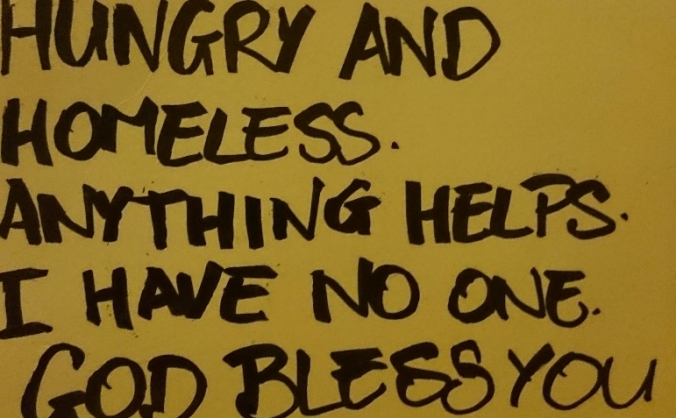 HUNGRY AND
HOMELESS.
ANYTHING HELPS.
I HAVE NO ONE.
GOD BLESS YOU